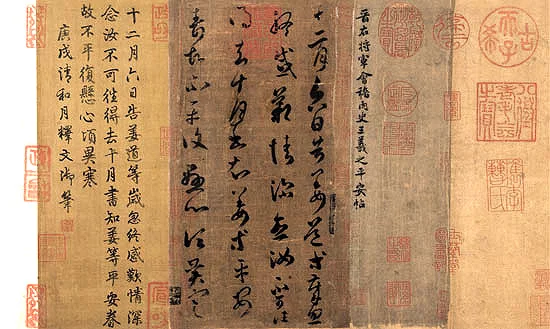 古希天子
八徵耄念之寶
晉右將軍會稽內史王羲之平安帖
十二月六日告姜道等歲忽
終感歎情深念汝不可往
得去十月書知姜等平安
眷故不平復懸心頃異寒
十二月六日告姜道等歲忽終感歎情深
念汝不可往得去十月書知姜等平安眷
故不平復懸心頃異寒
庚戌清和月釋文御筆